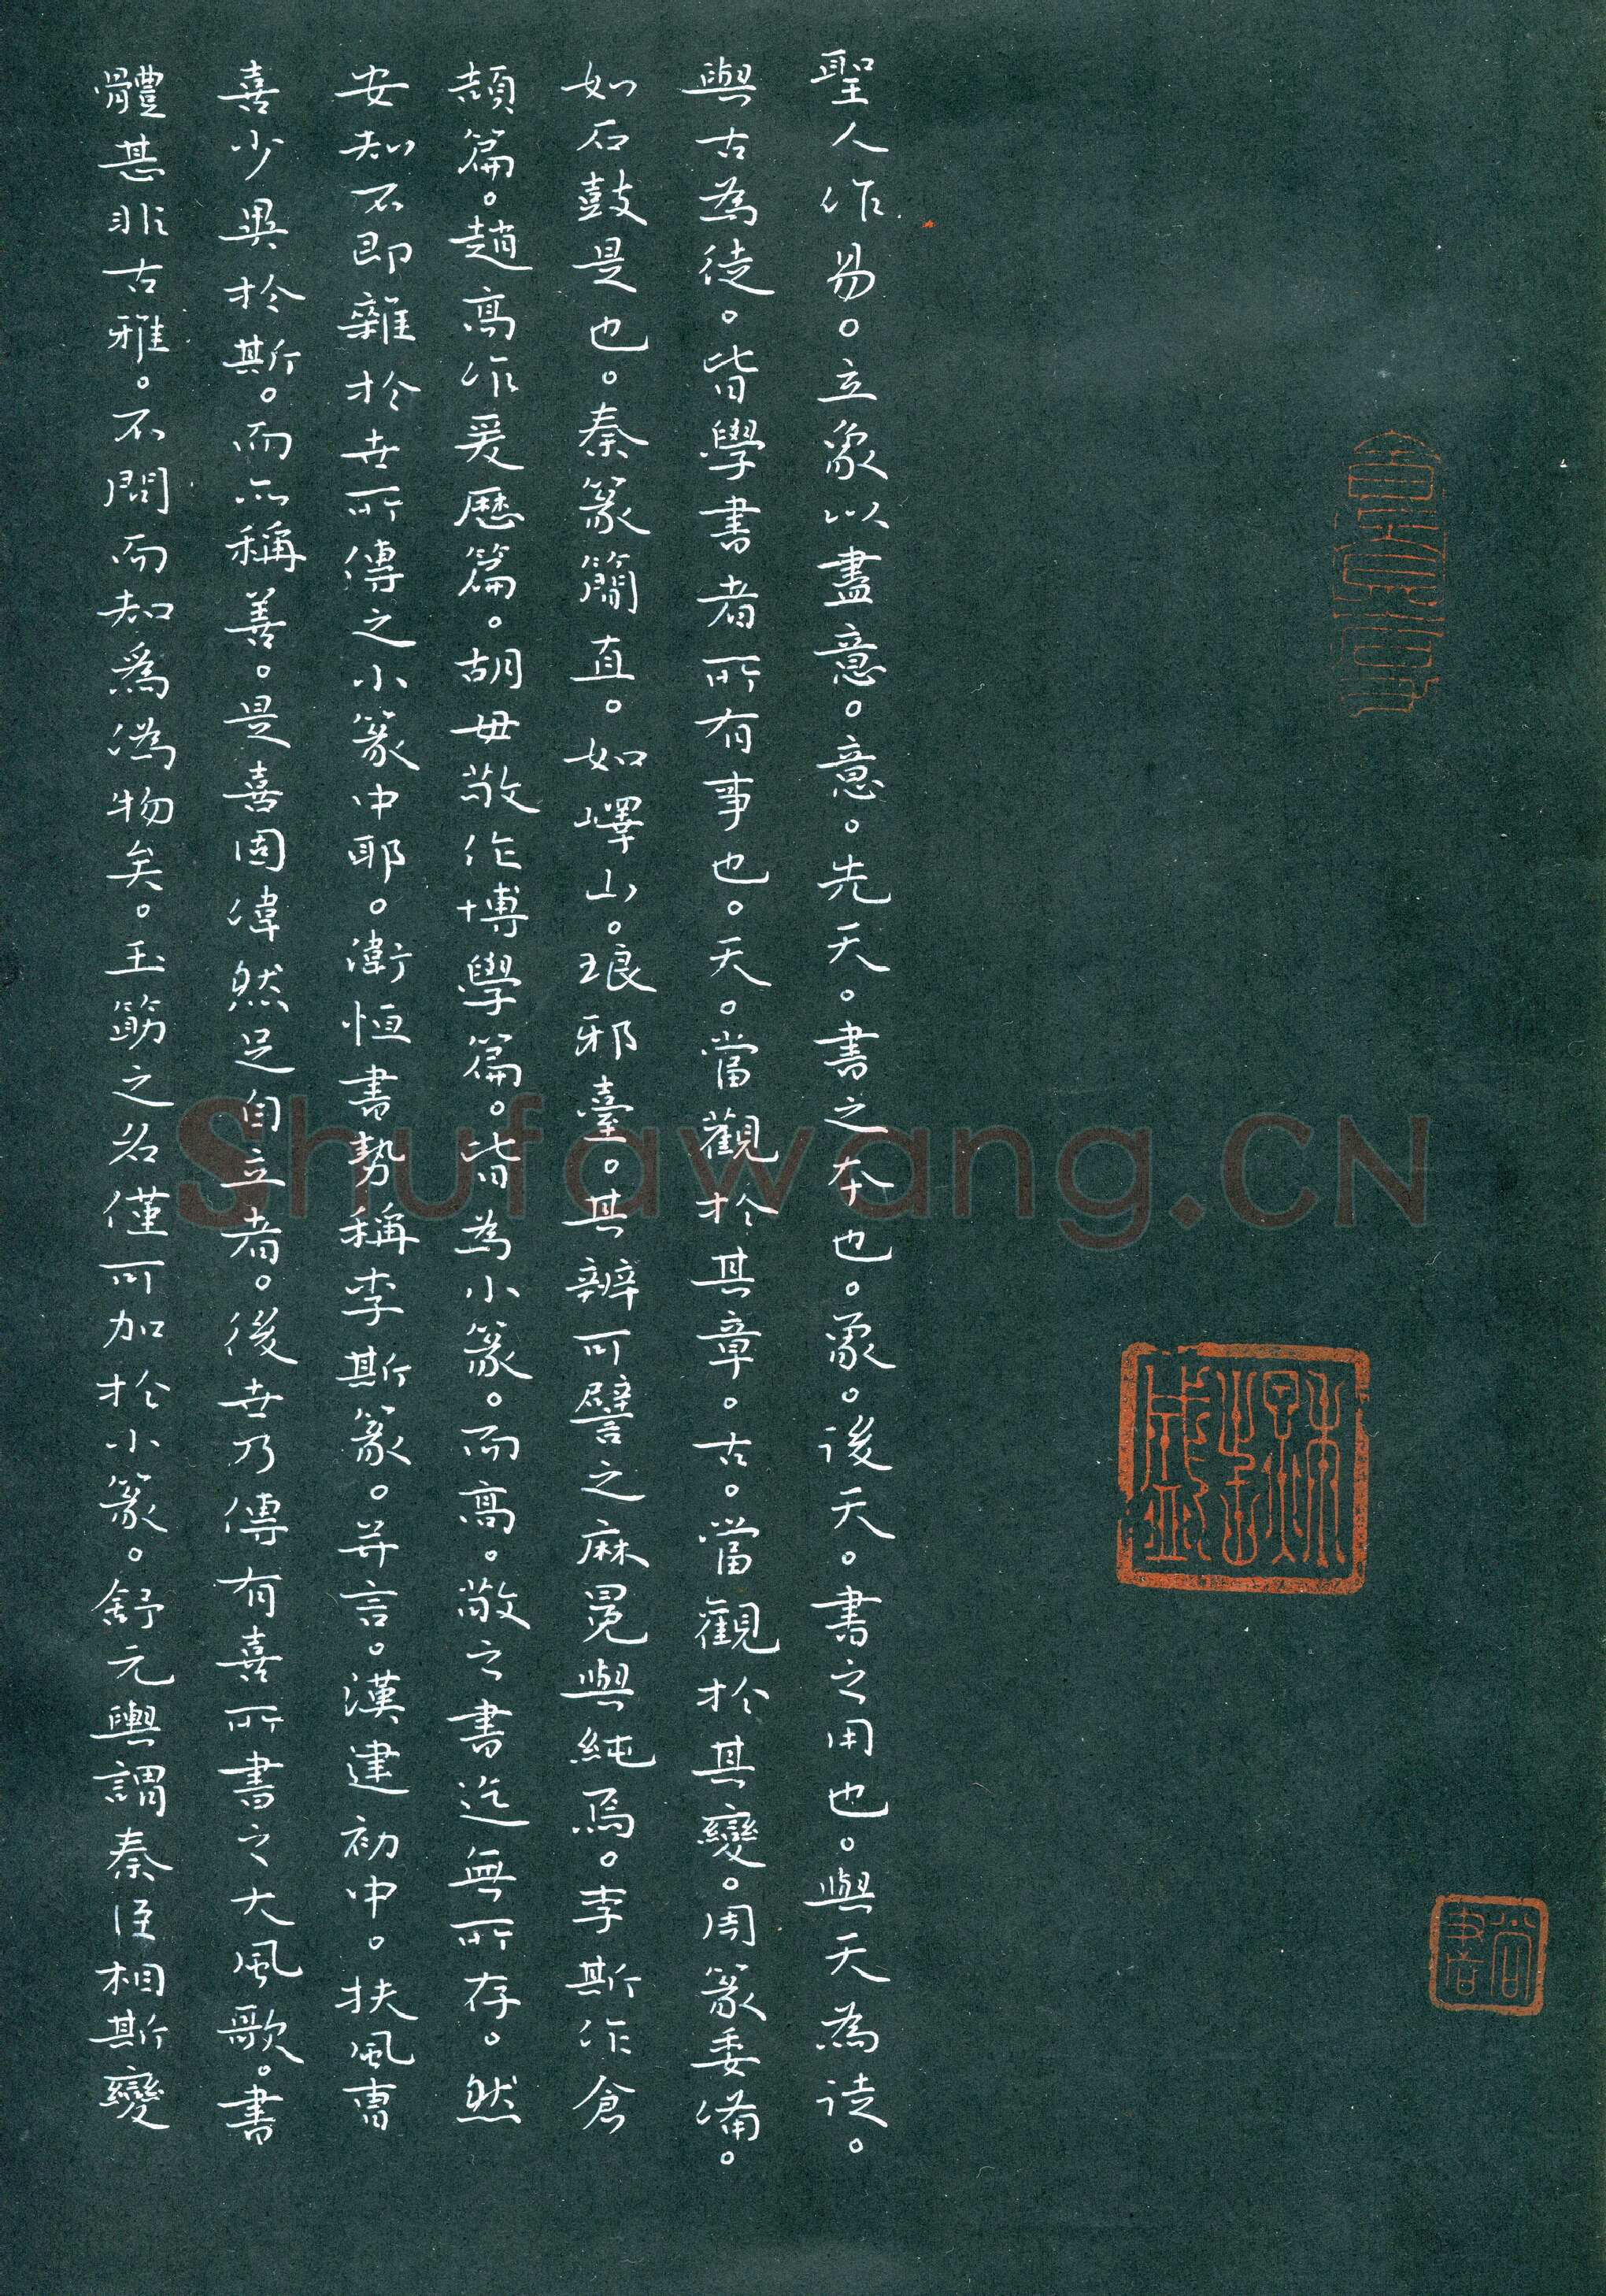 聖人作易。立象以盡意。意。先天。書之本也。象。後天。書之用也。與天為徒。
與古為徒。皆學書者所有事也。天。當觀於其章。古。當觀於其變。周篆委備。
如石鼓是也。秦篆簡直。如嶧山。琅邪臺。其辨可譬之麻冕與純焉。李斯作倉
頡篇。趙高作爰歷篇。胡毋敬作博學篇。皆為小篆。而高。敬之書迄無所存。然
安知不即雜於世所傳之小篆中耶。衛恒書勢稱李斯篆。并言。漢建初中。扶風曹
喜少異於斯。而亦稱善。是喜固偉然足自立者。後世乃傳有喜所書之大風歌。書
體甚非古雅。不問而知爲偽物矣。玉筯之名僅可加於小篆。舒元輿謂秦丞相斯變
Shufawang.CN